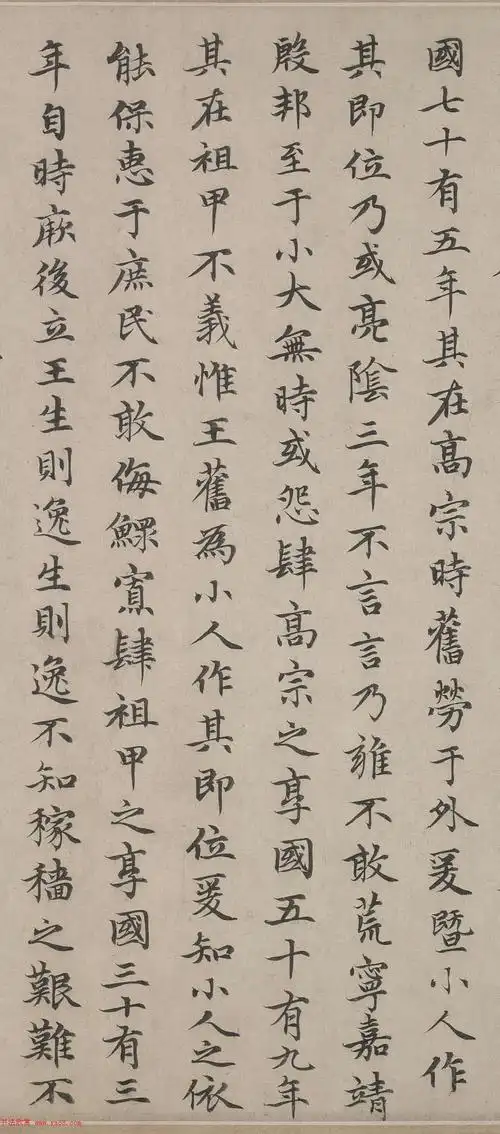 國七十有五年其在高宗時舊勞于外爰暨小人作
其即位乃或亮陰三年不言言乃雍不敢荒寧嘉靖
殷邦至于小大無時或怨肆高宗之享國五十有九年
其在祖甲不義惟王舊為小人作其即位爰知小人之依
能保惠于庶民不敢侮鰥寡肆祖甲之享國三十有三
年自時厥後立王生則逸生則逸不知稼穡之艱難不